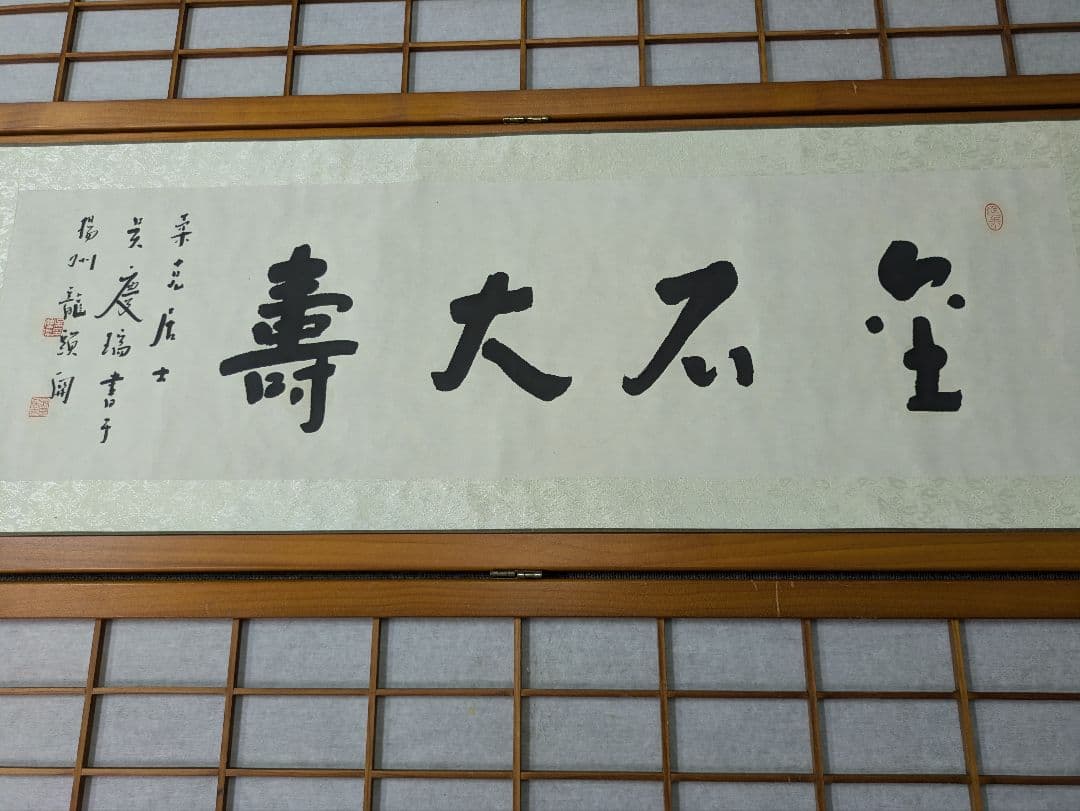 金石大壽
柔克居士
吴慶瑞書于
揚州龍頭關